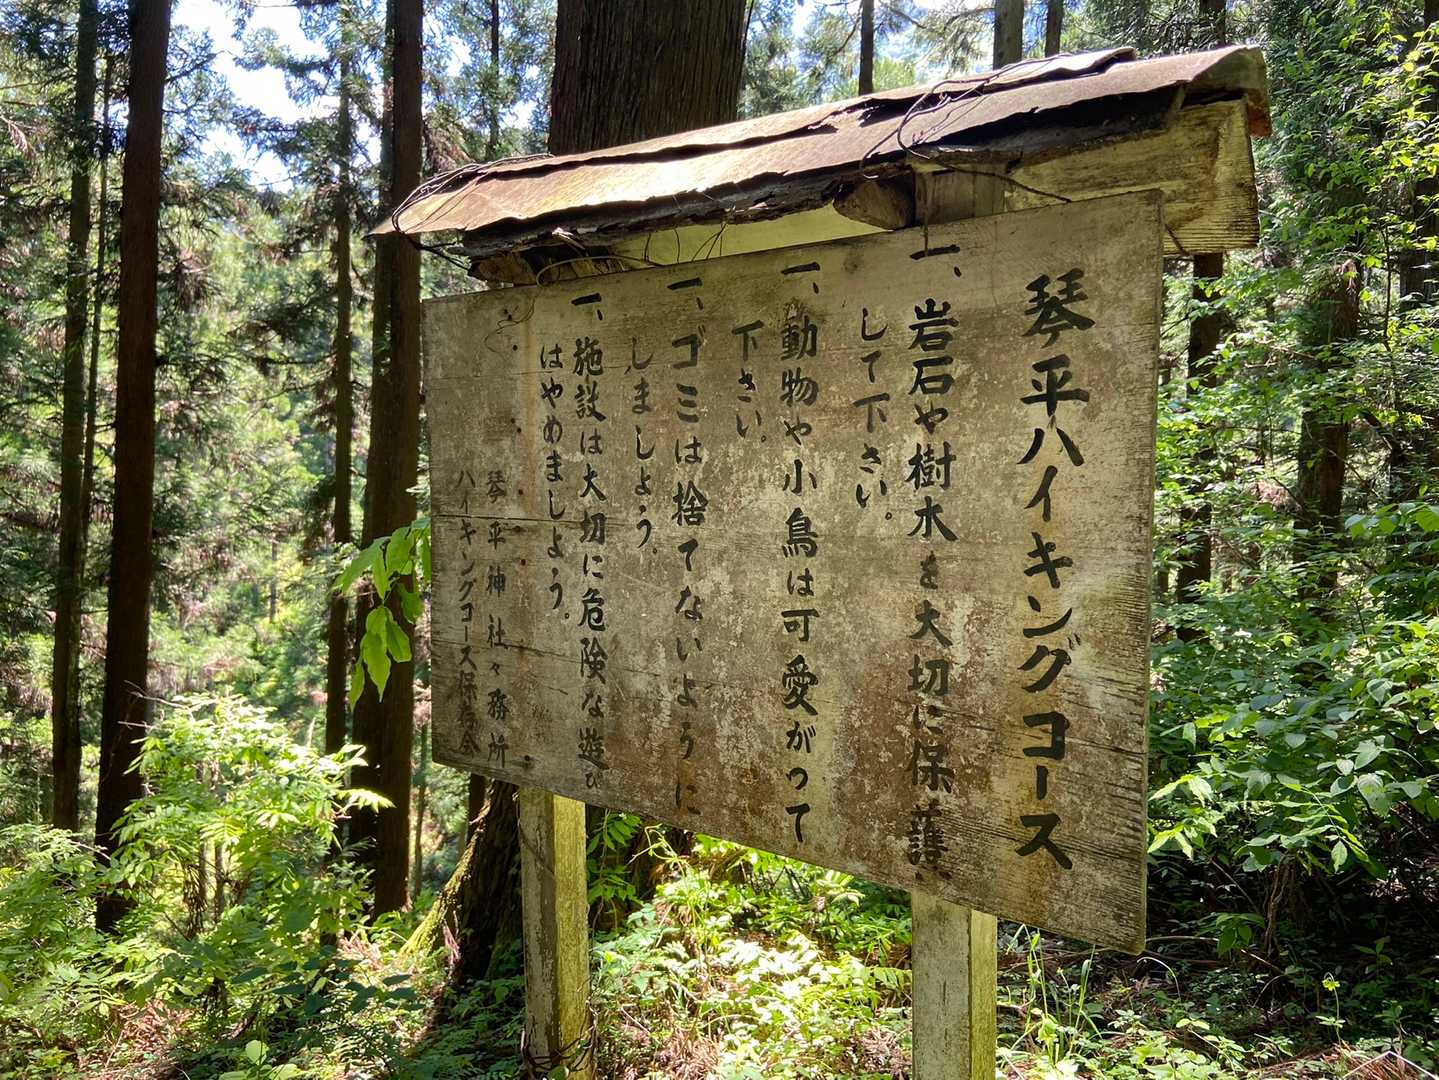 琴平ハイキングコース
一、岩石や樹木を大切に保護
して下さい。
一、動物や小鳥は可愛がって
下さい。
一、ゴミは捨てないように
しましょう。
一、施設は大切に危険な遊び
はやめましょう。
琴平神社々務所
ハイキングコース保存会